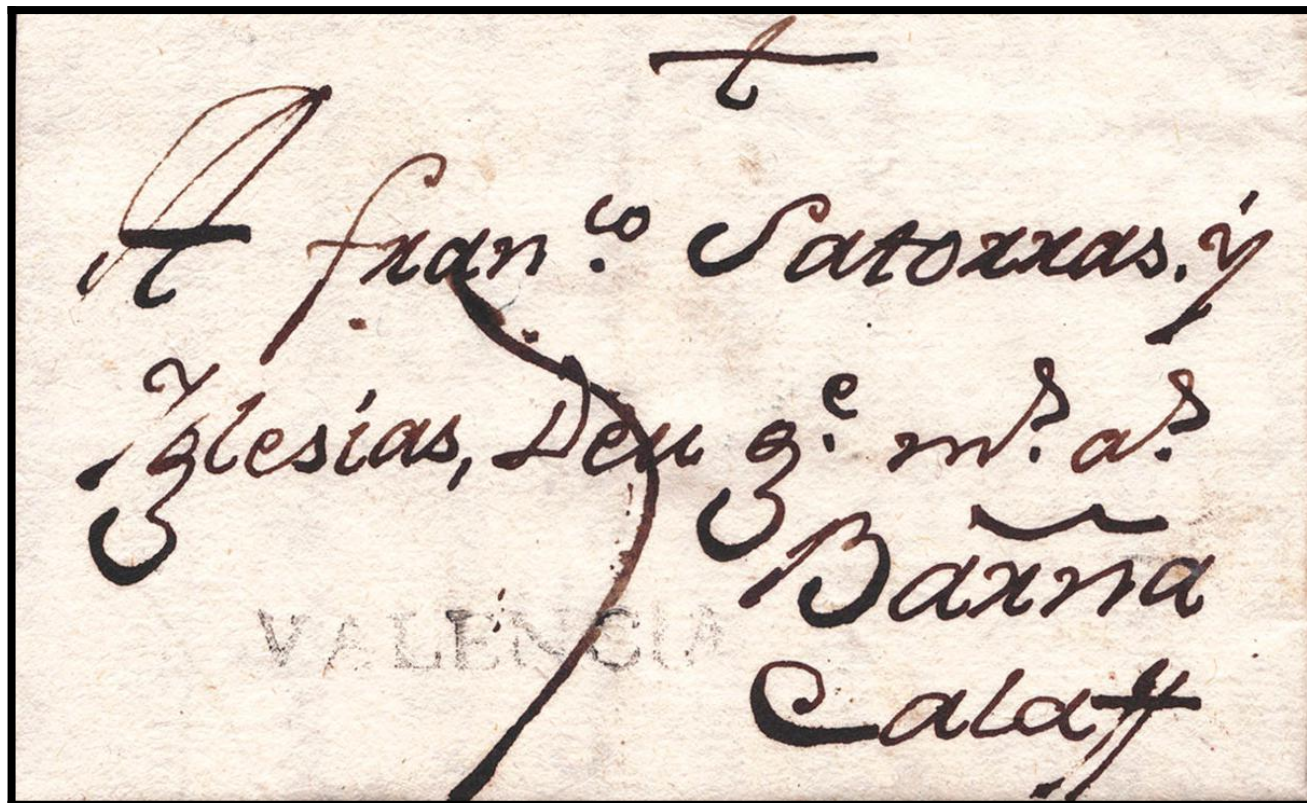 A Fran.co Satorras, y
Yglesias, Deu g.e m.s a.s
Barña
VALENCIA
Calaff